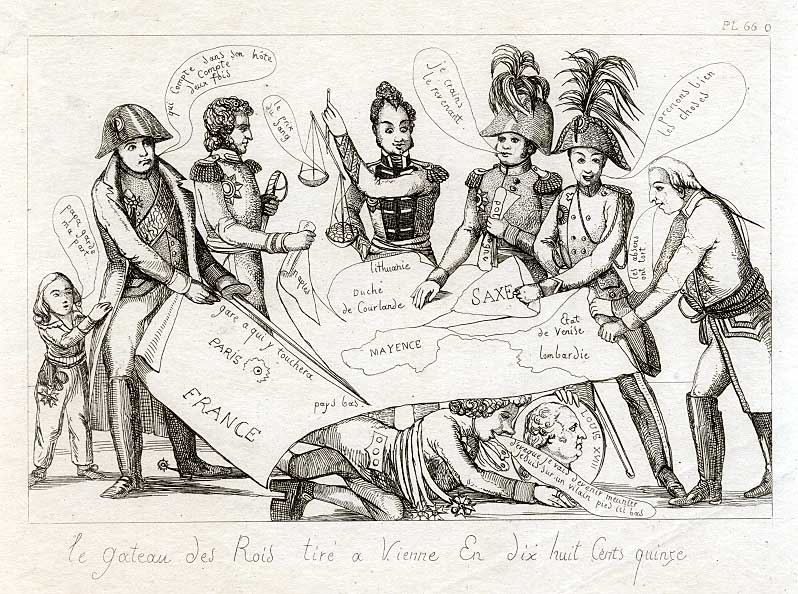 PL 66 0
qui Compte sans son hôte
Compte
deux fois
le prix
du sang
je crains
le revenant.
prenons bien
les choses
papa garde
ma part
les absens
ont tort
lithuanie
Duché
de Courlande
SAXE
MAYENCE
État
de Venise
lombardie
gare a qui y touchera
PARIS
FRANCE
pays bas
LOUIS XVIII
je vais devenir meunier
suis sur un vilain pied ici bas
le gateau des Rois tiré a Vienne En dix huit Cents quinze